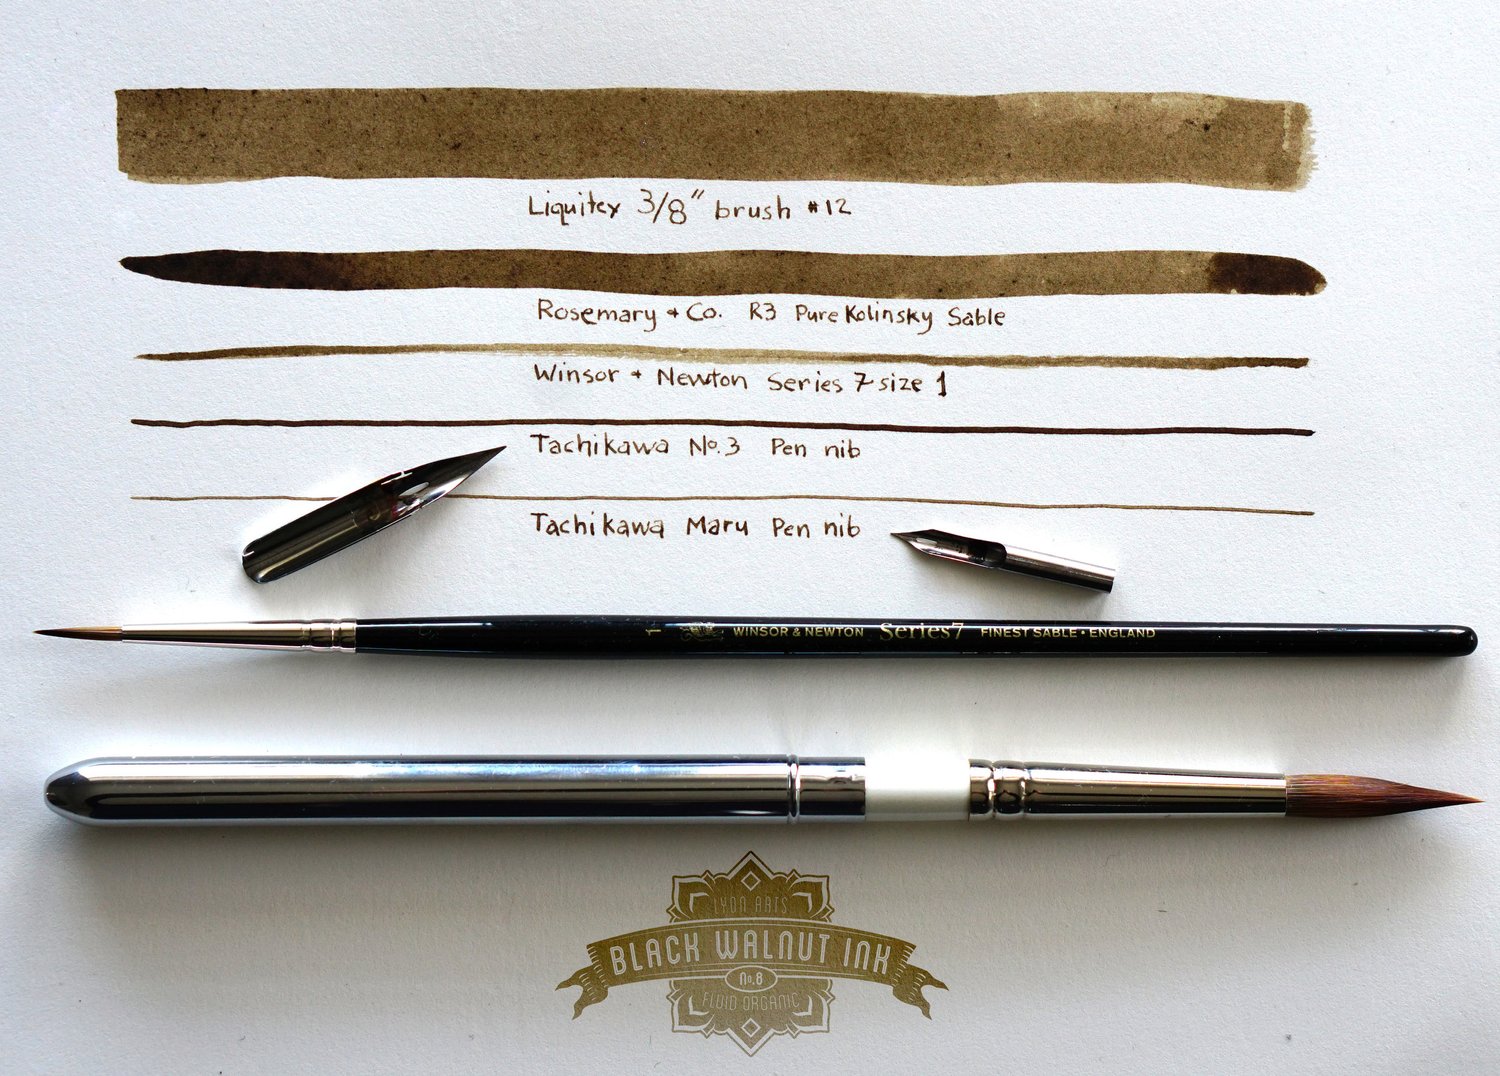 Liquitex 3/8" brush #12
Rosemary + Co. R3 Pure Kolinsky Sable
Winsor + Newton Series 7 size 1
Tachikawa No.3 Pen nib
Tachikawa Maru Pen nib
1 WINSOR & NEWTON Series 7 FINEST SABLE • ENGLAND
LYON ARTS
BLACK WALNUT INK
No.8
FLUID ORGANIC